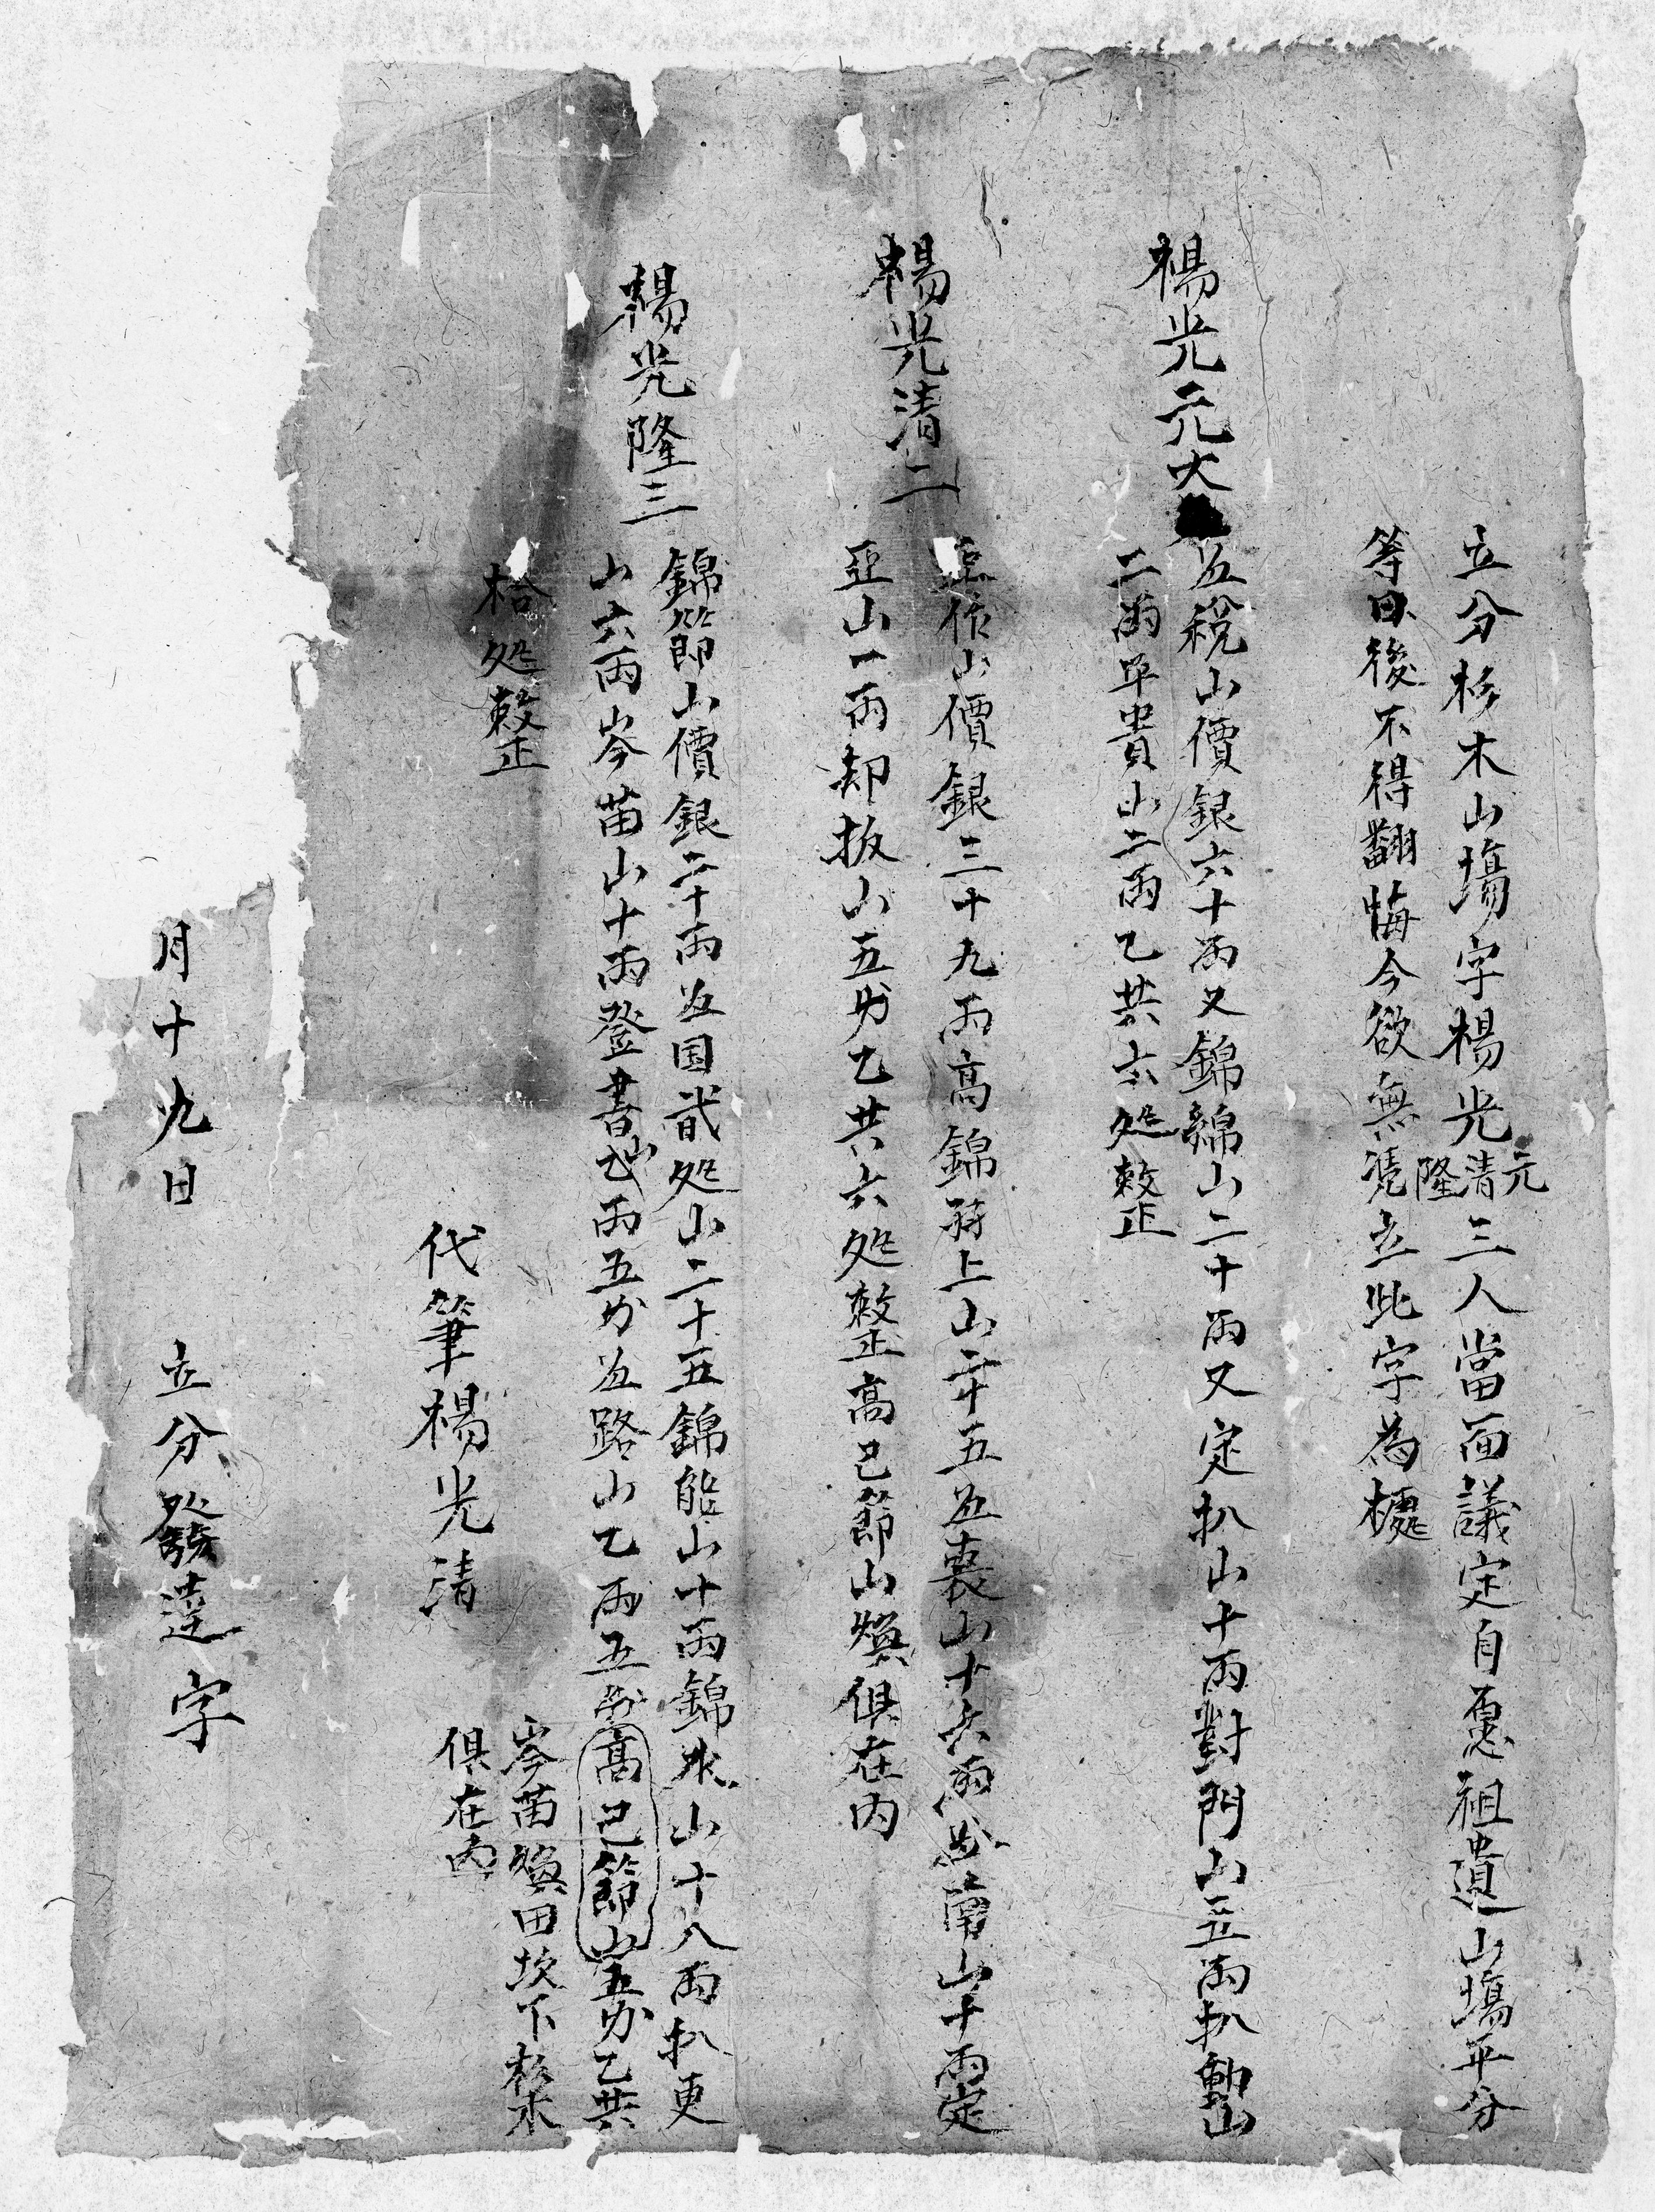 立分杉木山塲字楊光元清隆三人當面議定自愿祖遺山塲平分
等日後不得翻悔今欲無凴立此字為㯫
楊光元大
五稅山價銀六十兩又錦綿山二十兩又定扒山十兩對門山五兩扒動山
二兩早貴山二兩乙共六处整
楊光清二
作山價銀三十九兩高錦蔣上山二十五五喪山十六兩南山十兩定
亞山一兩却板山五分乙共六处整高己節山煥俱在內
楊光隆三
錦節山價銀二十兩五国貳处山二十五錦能山十兩錦米山十八兩扒更
山六兩岑苗山十兩登書山乙兩五分五路山乙兩五分高己節山五分乙共
拾处整
岑苗煥田坎下杉木
俱在內
代筆楊光清
月十九日 立分發達字